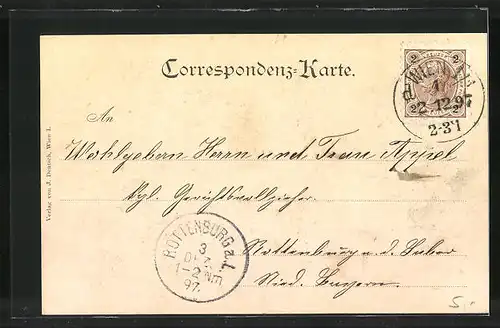 Correspondenz-Karte.
2 2
WIEN
2.12.97
2-3N
2 2
An
Wohlgeboren Herrn und Frau Appel
kgl. Gerichtsvollzieher
Rottenburg a. d. Laber
Nied. Bayern.
ROTTENBURG a.L.
3
DEZ.
1-2NM
97.
Verlag von J. Deutsch, Wien I.
5.-